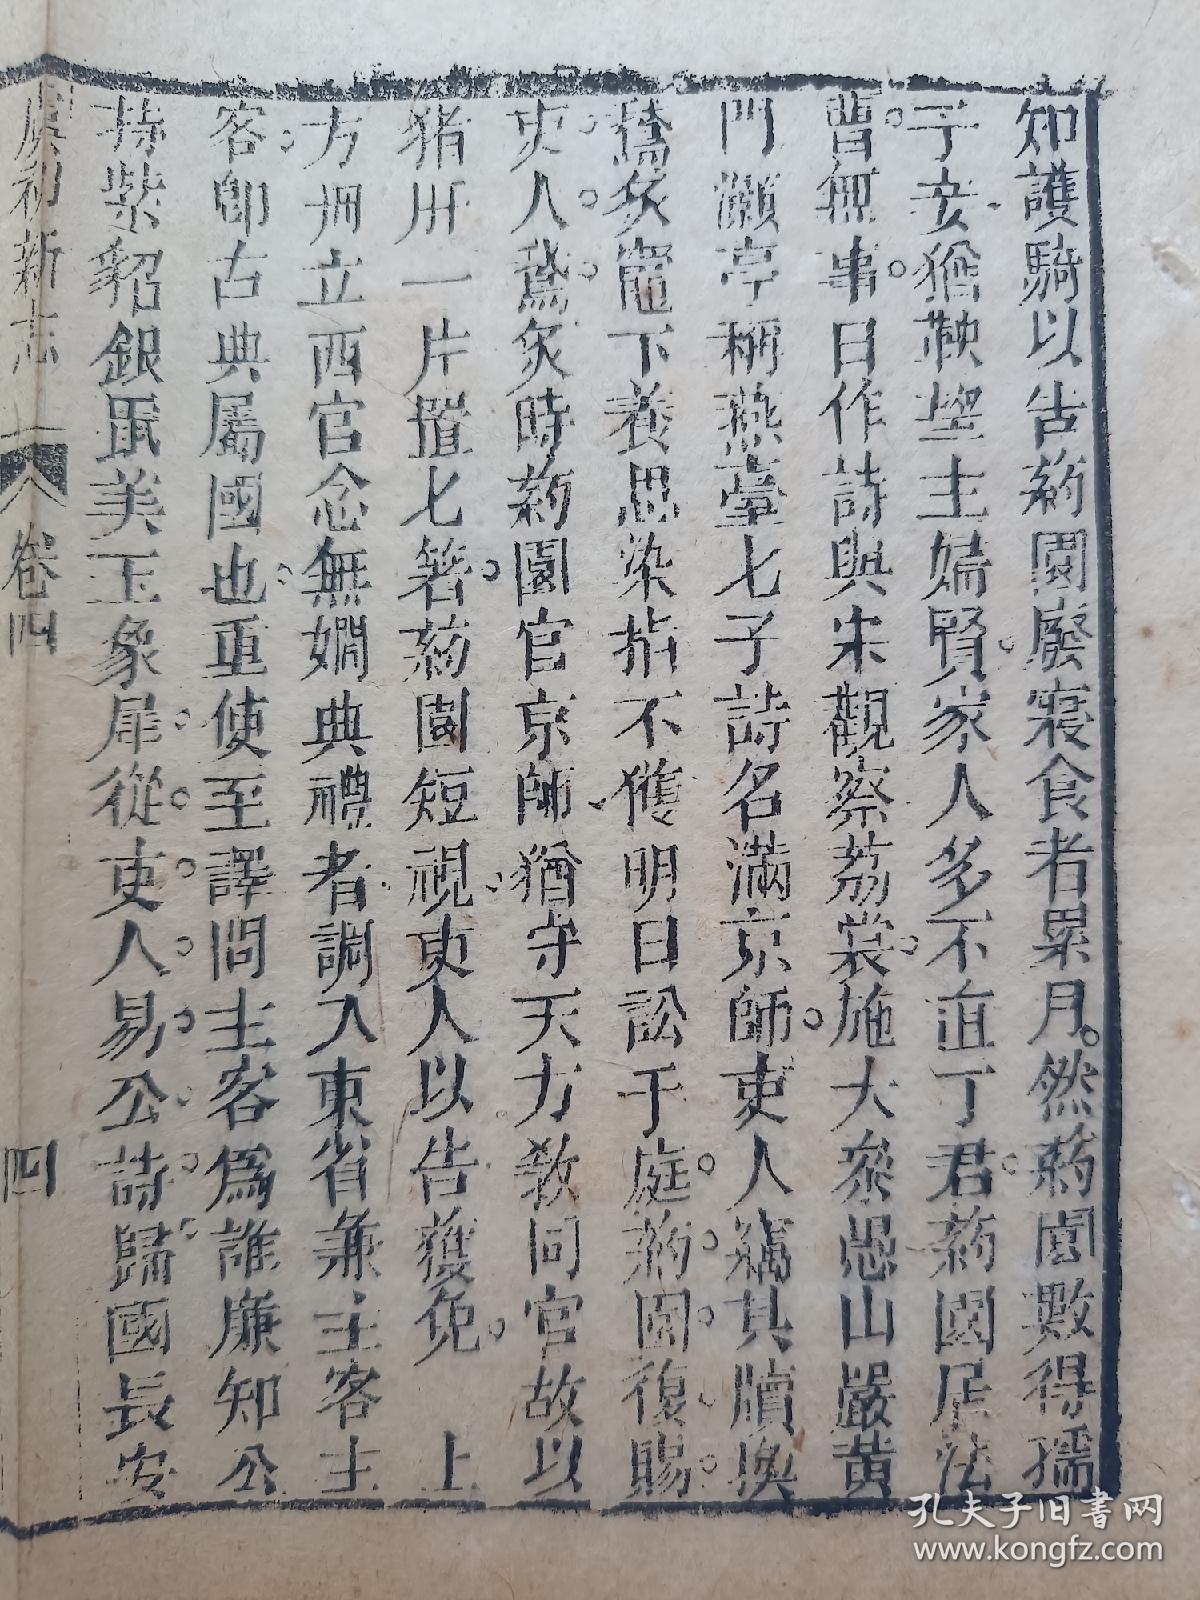 知護騎以告葯園廢寢食者累月然葯園數得孺
子妾猶鞅望主婦賢家人多不直丁君葯園居法
曹無事日作詩與宋觀察荔裳施大參愚山嚴黃
門灝亭稱燕臺七子詩名滿京師吏人竊其牘換
鵞炙竈下養思染指不獲明日訟于庭葯園復賜
吏人鵞炙時葯園官京師猶守天方教同官故以
猪肝一片置匕箸葯園短視吏人以告獲免 上
方冊立西宮念無嫺典禮者調入東省兼主客主
客即古典屬國也重使至譯問主客爲誰廉知公
持紫貂銀鼠美玉象犀從吏人易公詩歸國長安
虞初新志 卷四 四
孔夫子旧书网
www.kongfz.com